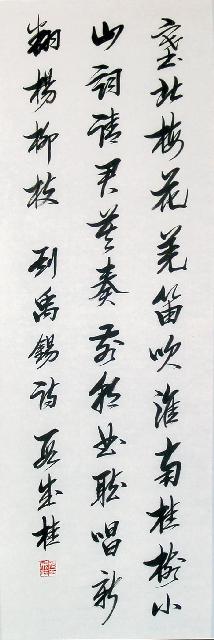 塞北梅花羌笛吹淮南桂树小
山词请君莫奏前朝曲听唱新
翻杨柳枝 刘禹锡诗 成桂